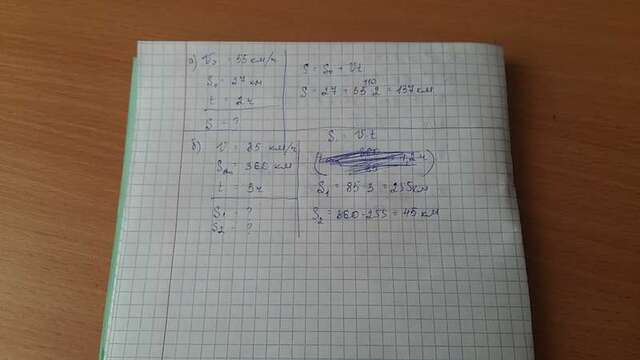 а) V₀ = 55 км/ч
S₁ = 27 км
t = 2ч
S = ?
S = S₁ + Vt
110
S = 27 + 55·2 = 137 км
б) V = 85 км/ч
S = 300 км
t = 3ч
S₁ = ?
S₂ = ?
S = Vt
S₁ = 85·3 = 255 км
S₂ = 300-255 = 45 км